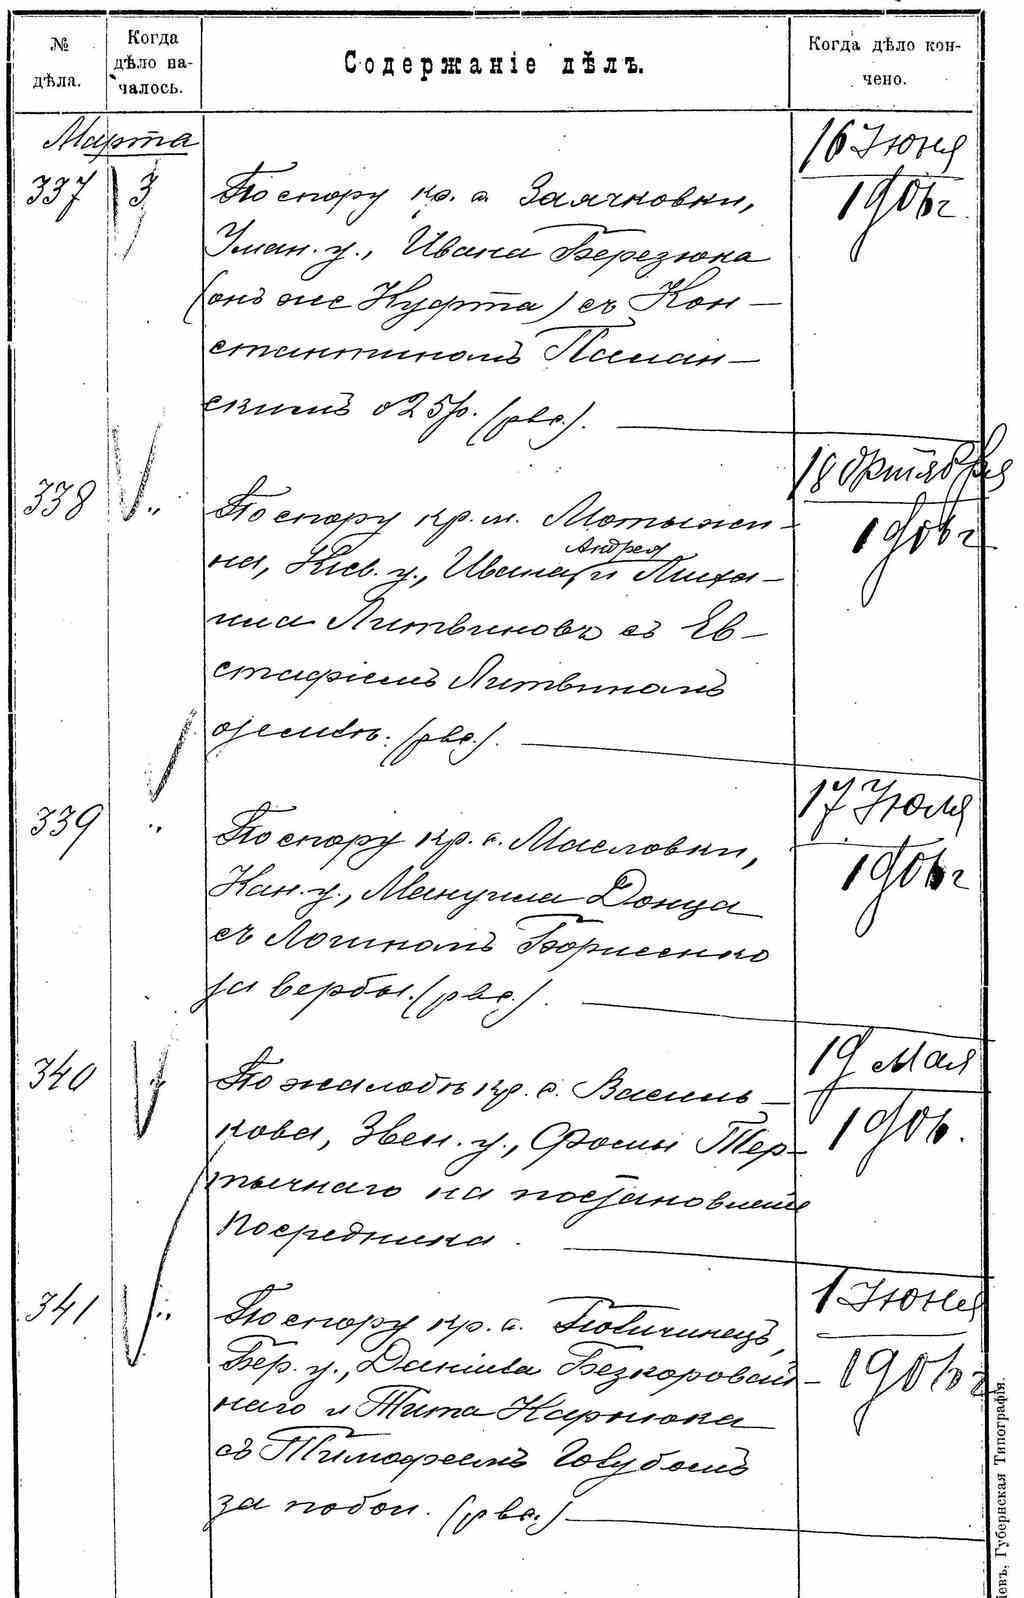 № дѣла.
Когда дѣло на-
чалось.
Содержаніе дѣлъ.
Когда дѣло кон-
чено.
Марта
337
3
По спору кр. с. Заячковки,
Уман. у., Ивана Березюка
(онъ же Куфта) съ Кон-
стантиномъ Паман-
скимъ о 25 р. (рвс.).
16 Июня
1906 г.
338
„
По спору кр. м. Мотыжи-
на, Кіев. у., Ивана, Андрея и Миха-
ила Литвиновъ съ Ев-
стафіемъ Литвиномъ
о землѣ. (рвс.).
18 Октября
1906 г
339
„
По спору кр. с. Масловки,
Кан. у., Мануила Донца
съ Логиномъ Борисенко
за вербы. (рвс.).
17 Июля
1906 г
340
„
По жалобѣ кр. с. Василь-
кова, Звен. у., Фомы Тер-
пычнаго на постановленіе
посредника.
19 Мая
1906.
341
„
По спору кр. с. Повичинецъ,
Бер. у., Даніила Безкоровай-
наго и Тита Карнюка
съ Тимофеемъ Голубомъ
за побои. (рвс.)
1 Июня
1906 г
іевъ, Губернская Типографія.